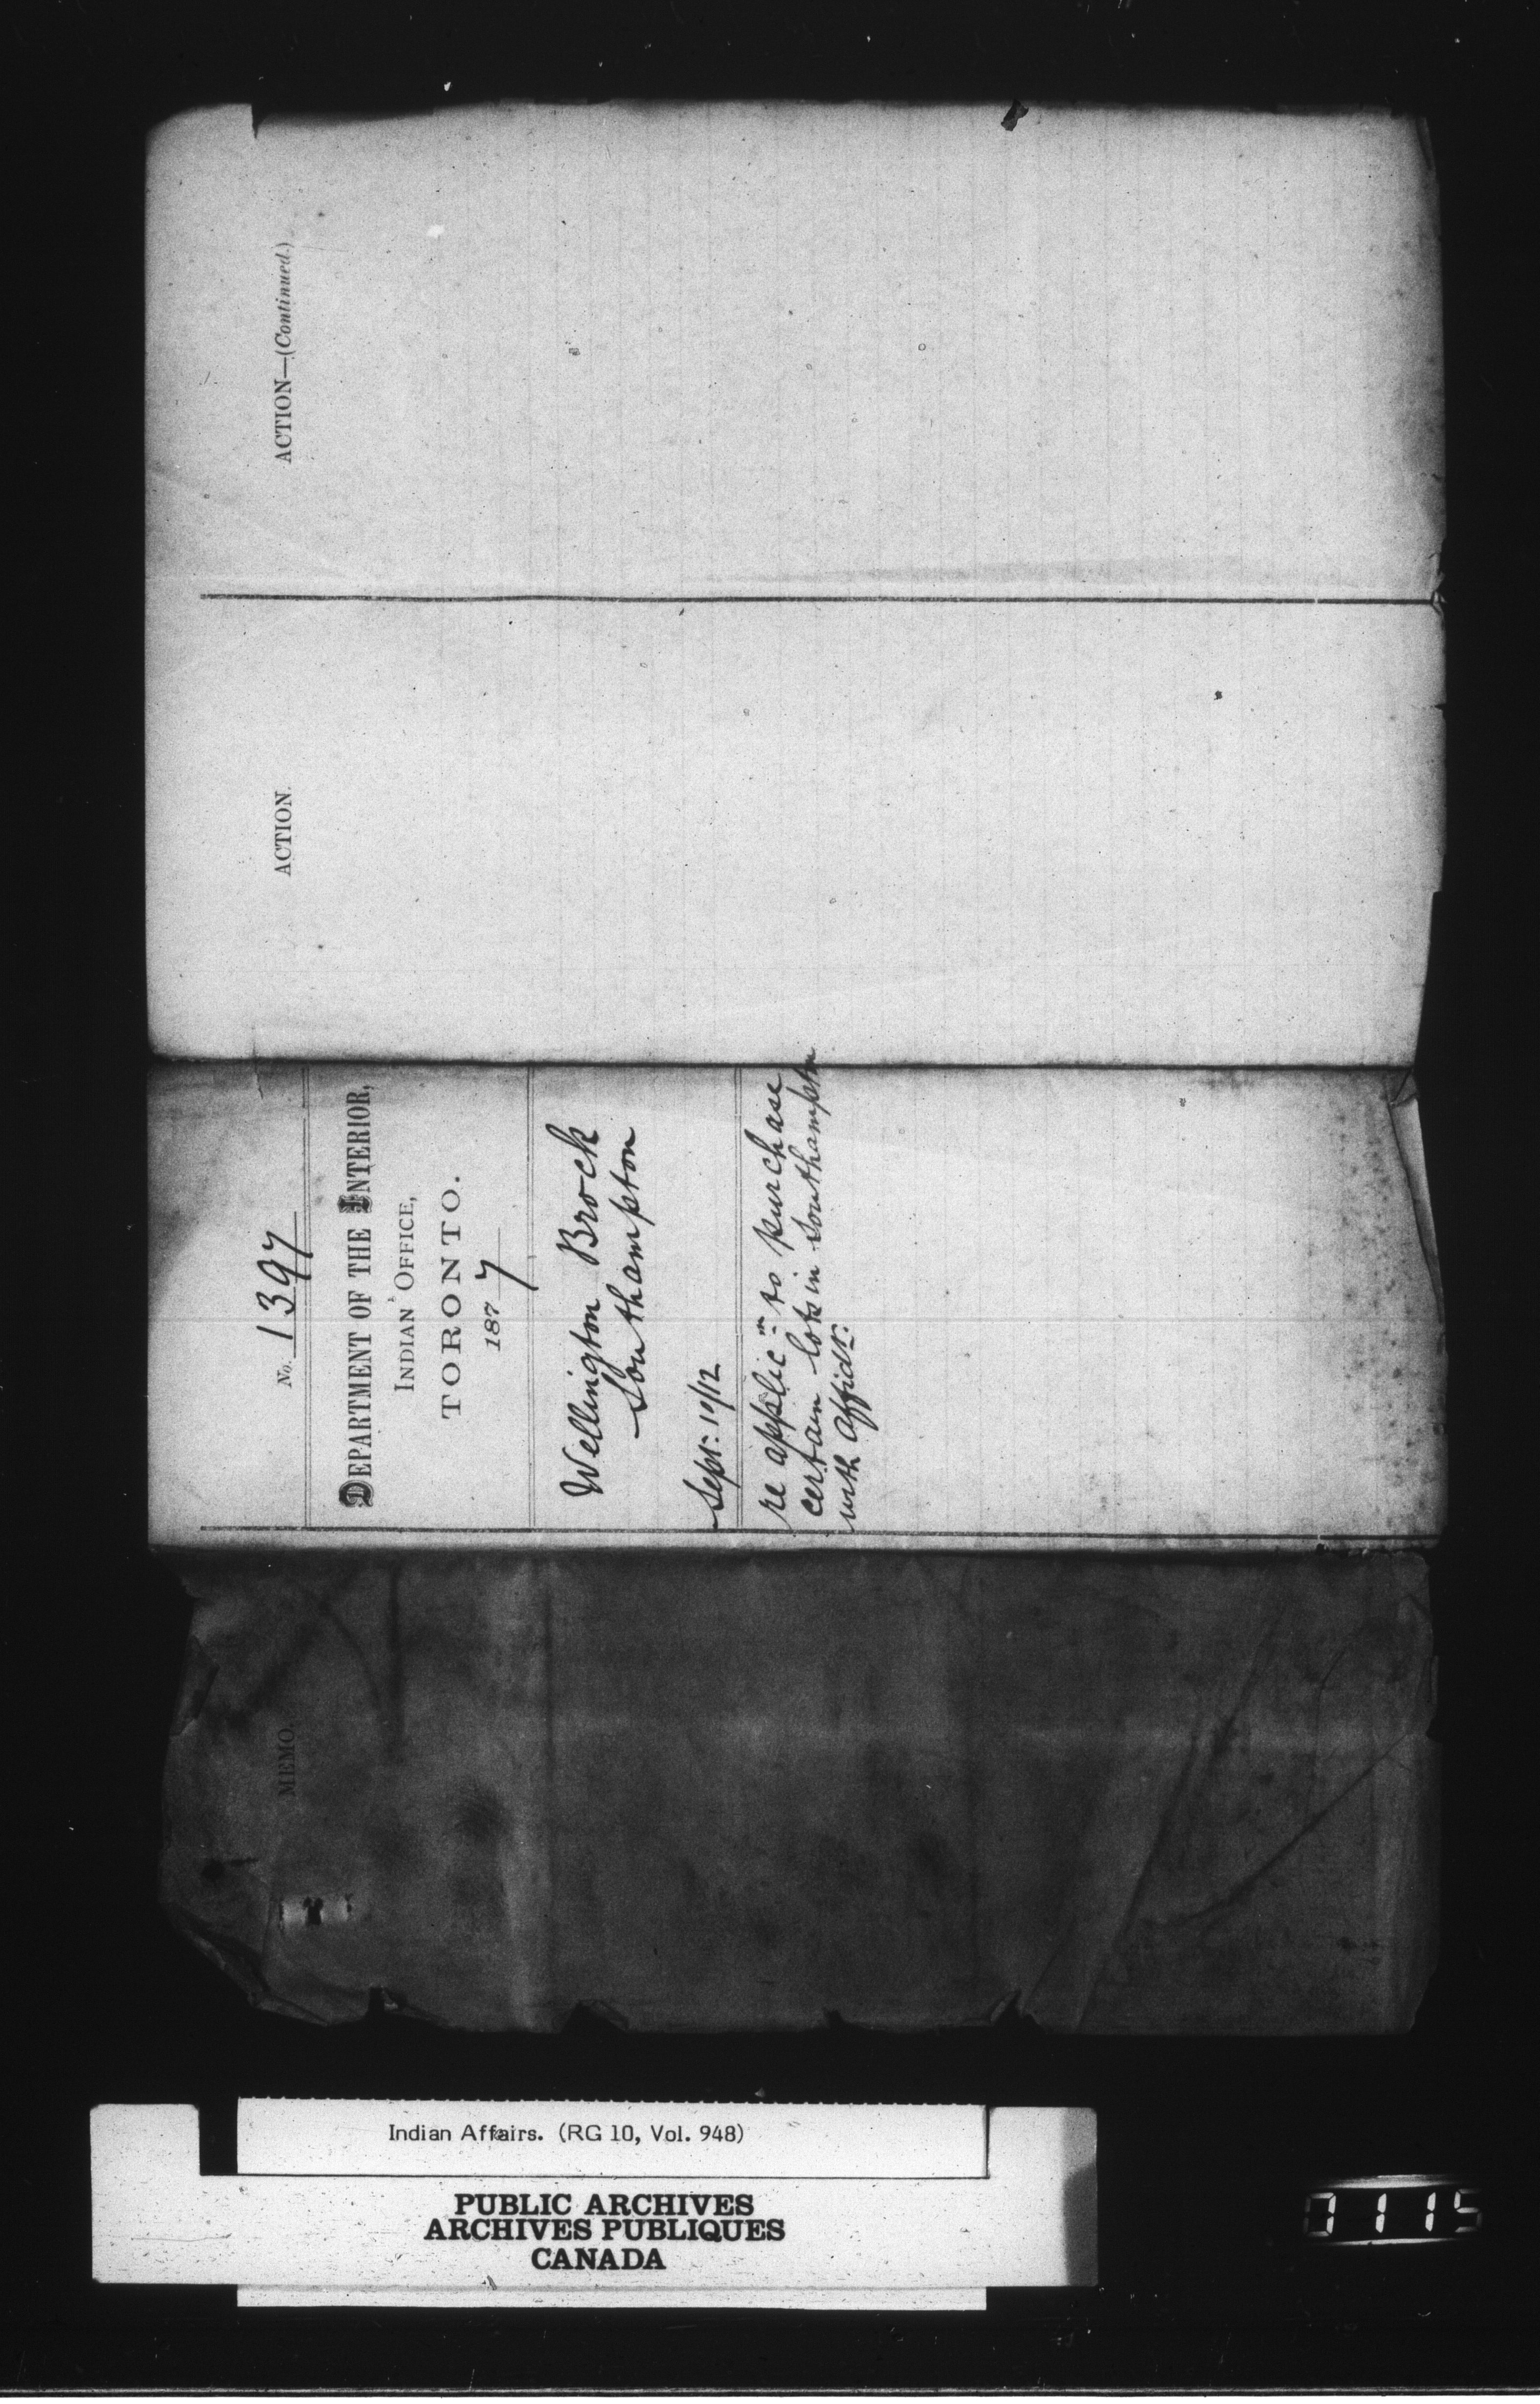 ACTION—(Continued.)
ACTION.
No. 1397
DEPARTMENT OF THE INTERIOR,
INDIAN OFFICE,
TORONTO.
1877
Wellington Brock
Southampton
Sept: 10/12
re applicⁿ to purchase
certain lots in Southampton
with affidt:
MEMO.
Indian Affairs. (RG 10, Vol. 948)
PUBLIC ARCHIVES
ARCHIVES PUBLIQUES
CANADA
0115